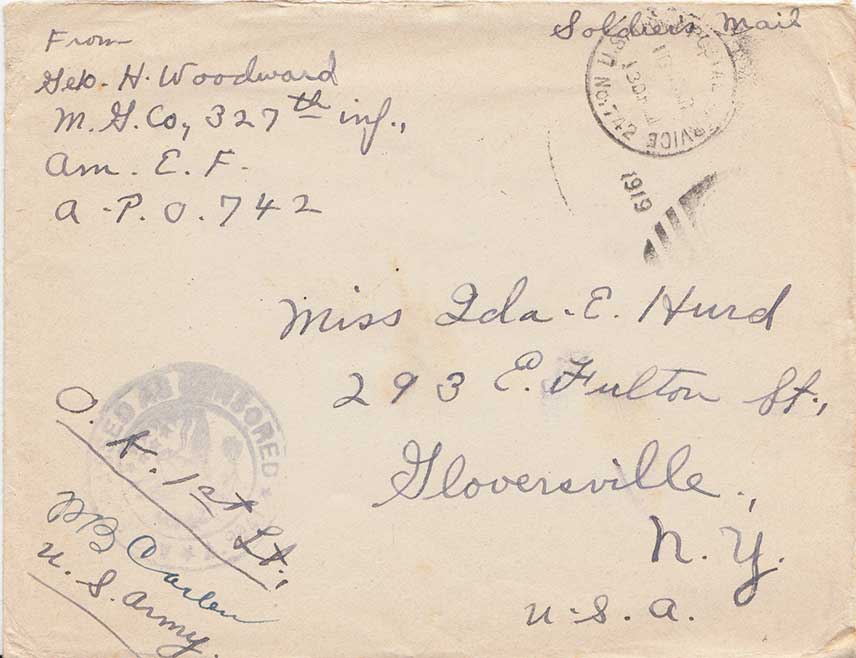 From
Geo. H. Woodward
M. G. Co, 327th inf.,
Am. E. F.
A. P. O. 742
Soldier's Mail
1919
Miss Ida. E. Hurd
293 E. Fulton St.,
Gloversville,
N. Y.
U. S. A.
AS CENSORED
O. K. 1st Lt.,
U. S. Army.